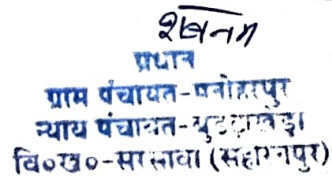 शबनम
प्रधान
ग्राम पंचायत-मनोहरपुर
न्याय पंचायत-
वि०ख०-सरसावा (सहारनपुर)